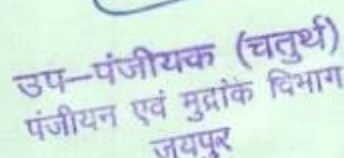 उप–पंजीयक (चतुर्थ)
पंजीयन एवं मुद्रांक विभाग
जयपुर